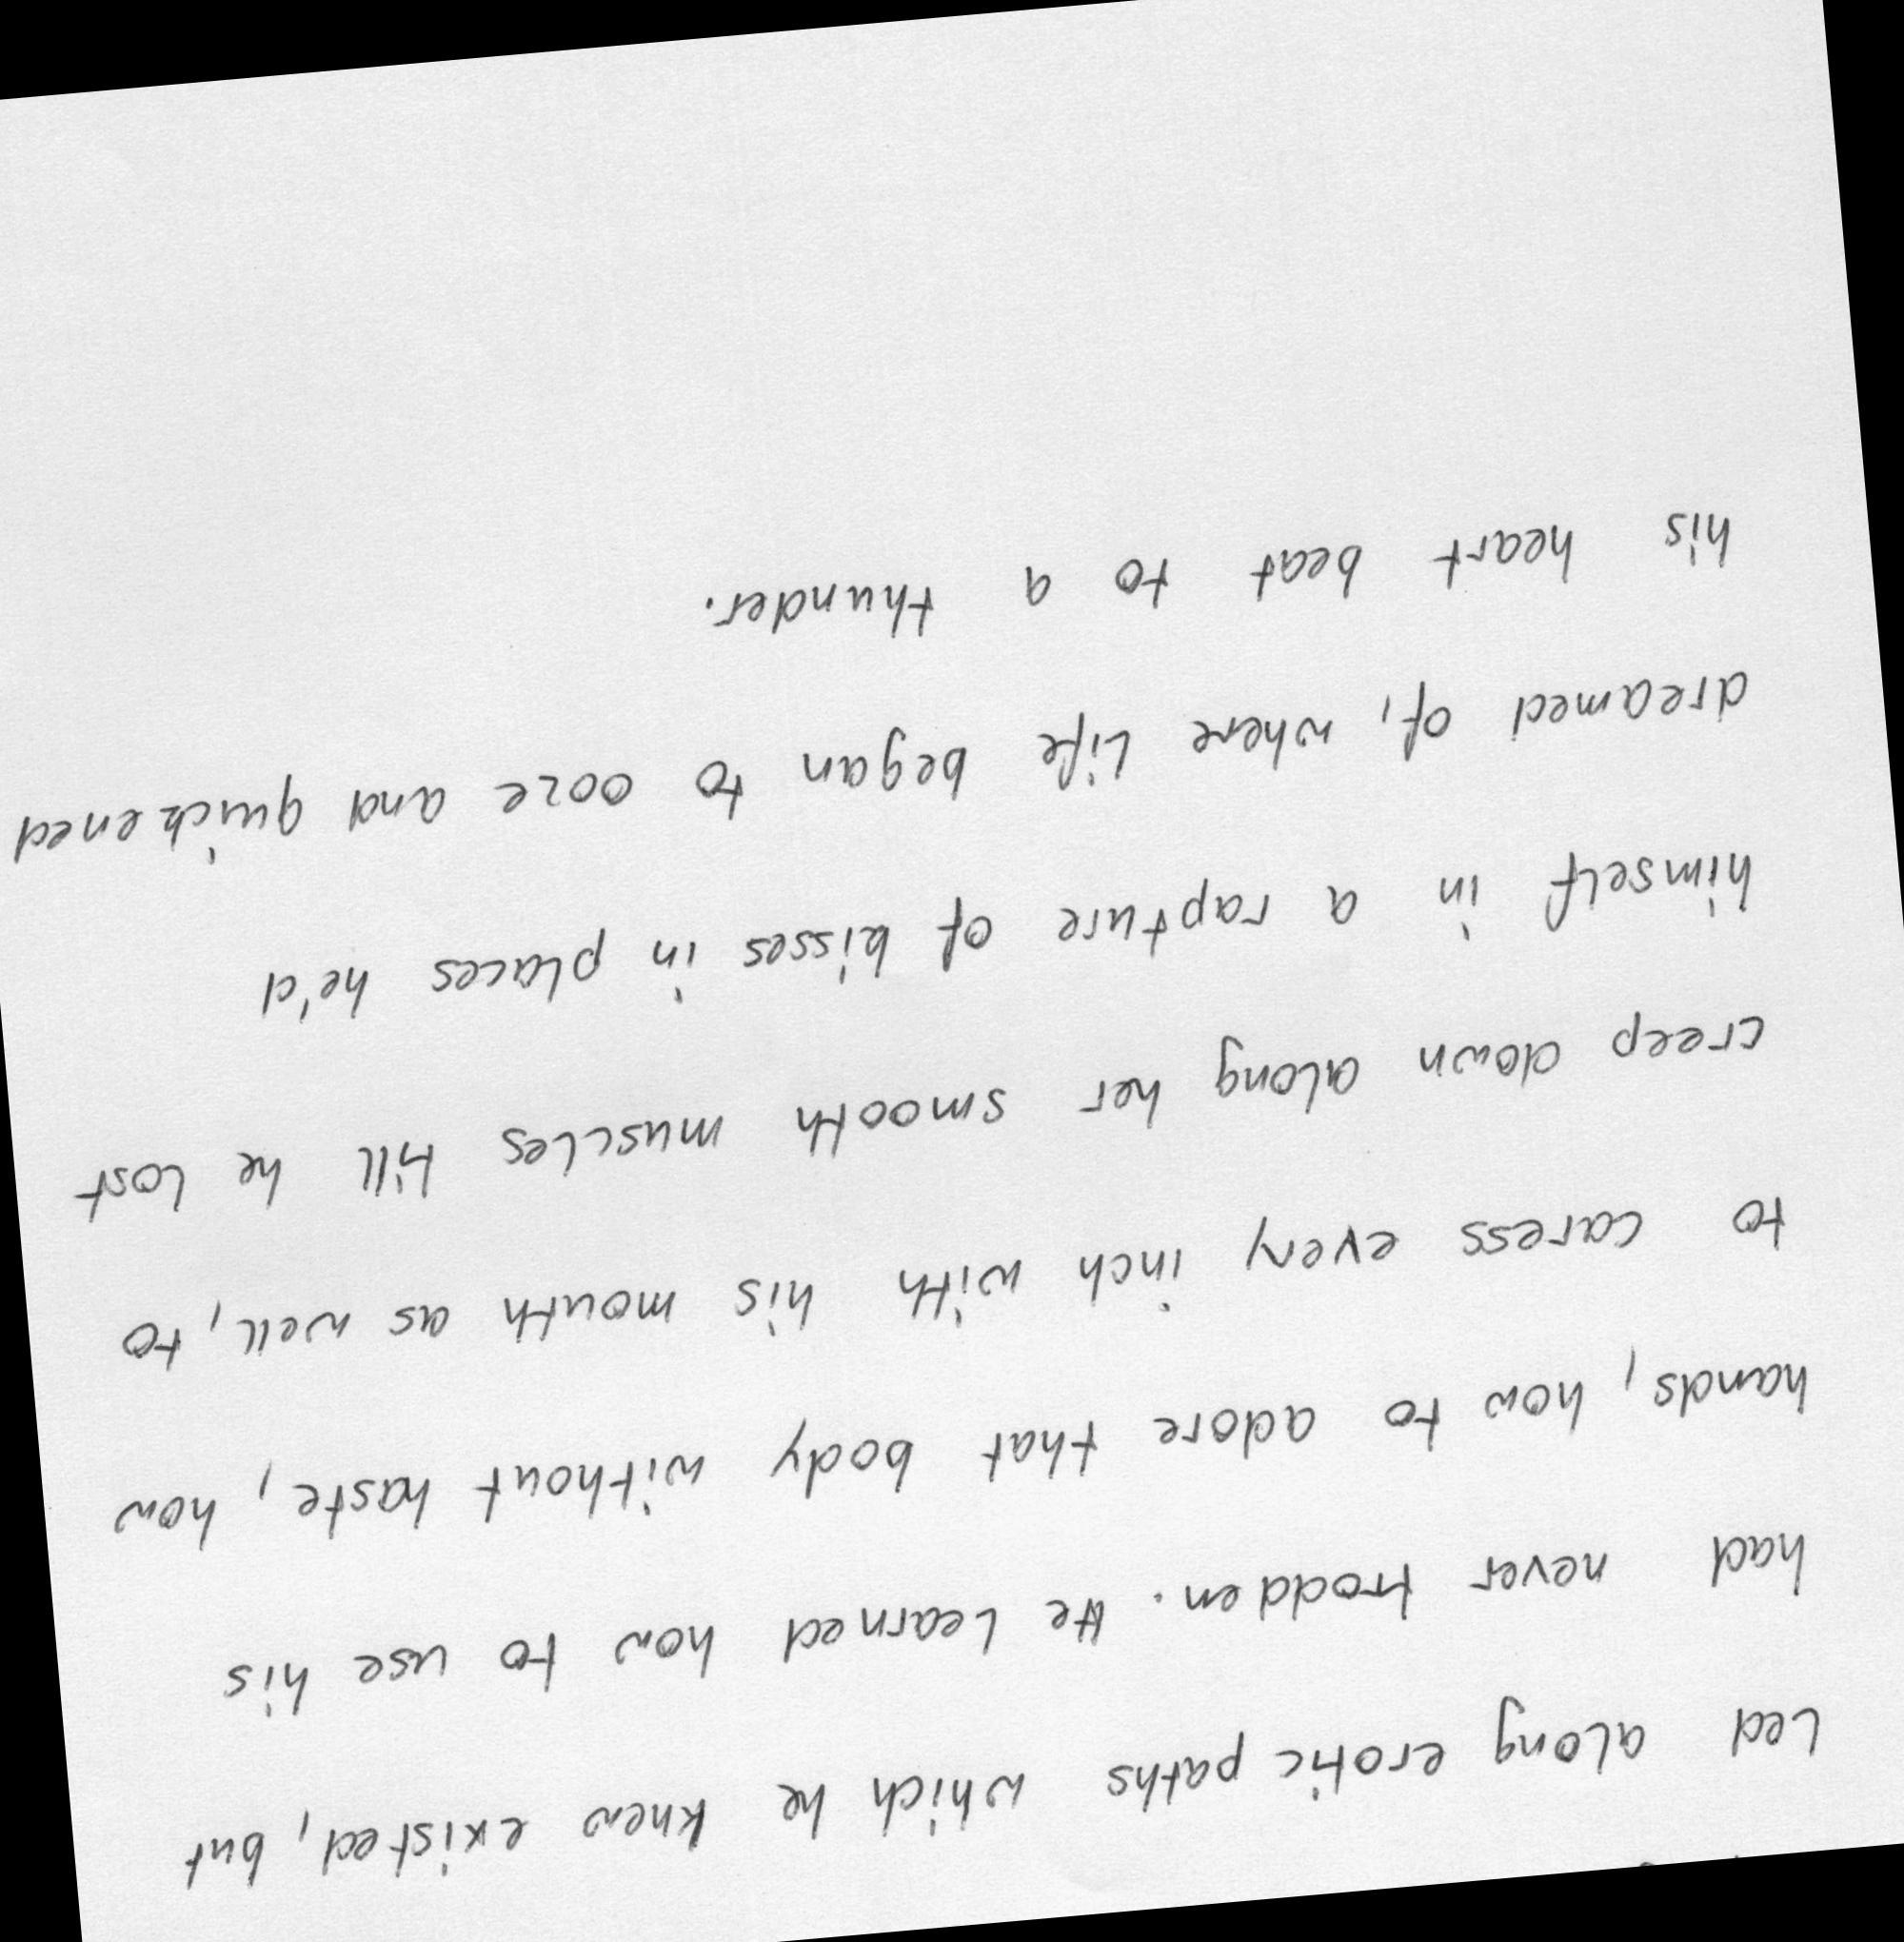 Led along erotic paths which he knew existed, but
had never trodden. He Learned how to use his
hands, how to adore that body without haste, how
to caress every inch with his mouth as well, to
creep down along her smooth muscles till he lost
himself in a rapture of kisses in places he'd
dreamed of, where life began to ooze and quickened
his heart beat to a thunder.